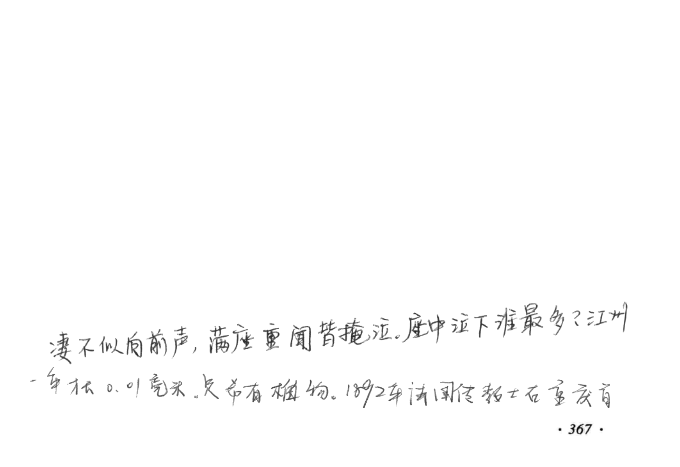 凄不似向前声，满座重闻皆掩泣。座中泣下谁最多？江州
一年长0.01毫米。只希有植物。1892年法国传教士石室庆育
· 367 ·